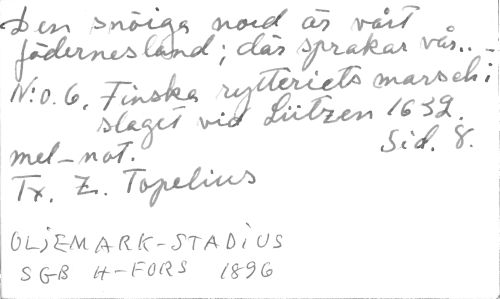 Den snöiga nord är vårt
fädernesland; där sprakar vår.. -
N:o. 6. Finska rytteriets marsch i
slaget vid Lützen 1632.
mel-not. Sid. 8.
Tx. Z. Topelius
OLJEMARK-STADIUS
SGB H-FORS 1896